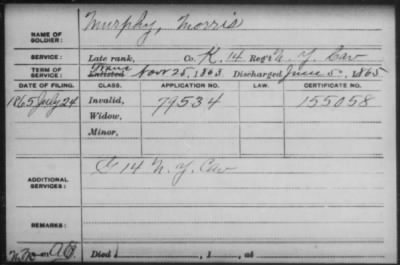 Murphy, Morris
NAME OF SOLDIER:
SERVICE: Late rank, Co. K, 14 Reg't N. Y. Cav
TERM OF SERVICE: Enlisted Nov 25, 1863 Discharged June 5, 1865
DATE OF FILING. CLASS. APPLICATION NO. LAW. CERTIFICATE NO.
1865 July 24 Invalid, 79534 155058
Widow,
Minor,
ADDITIONAL SERVICES: G 14 N. Y. Cav
REMARKS:
Died , 1 , at